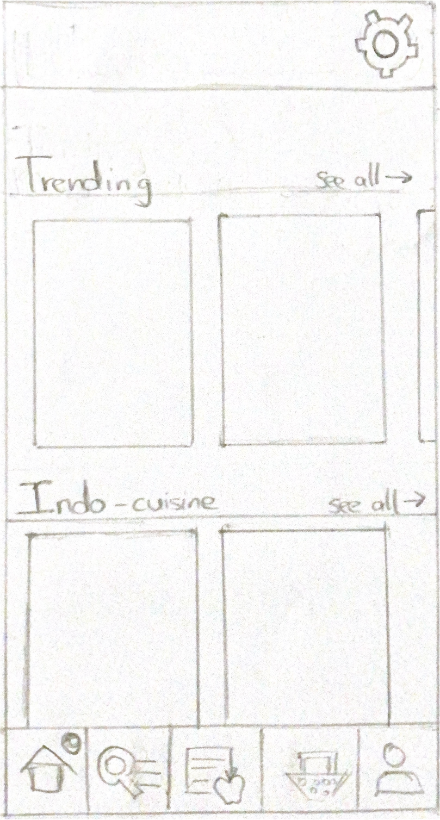 Trending
see all →
Indo-cuisine
see all →